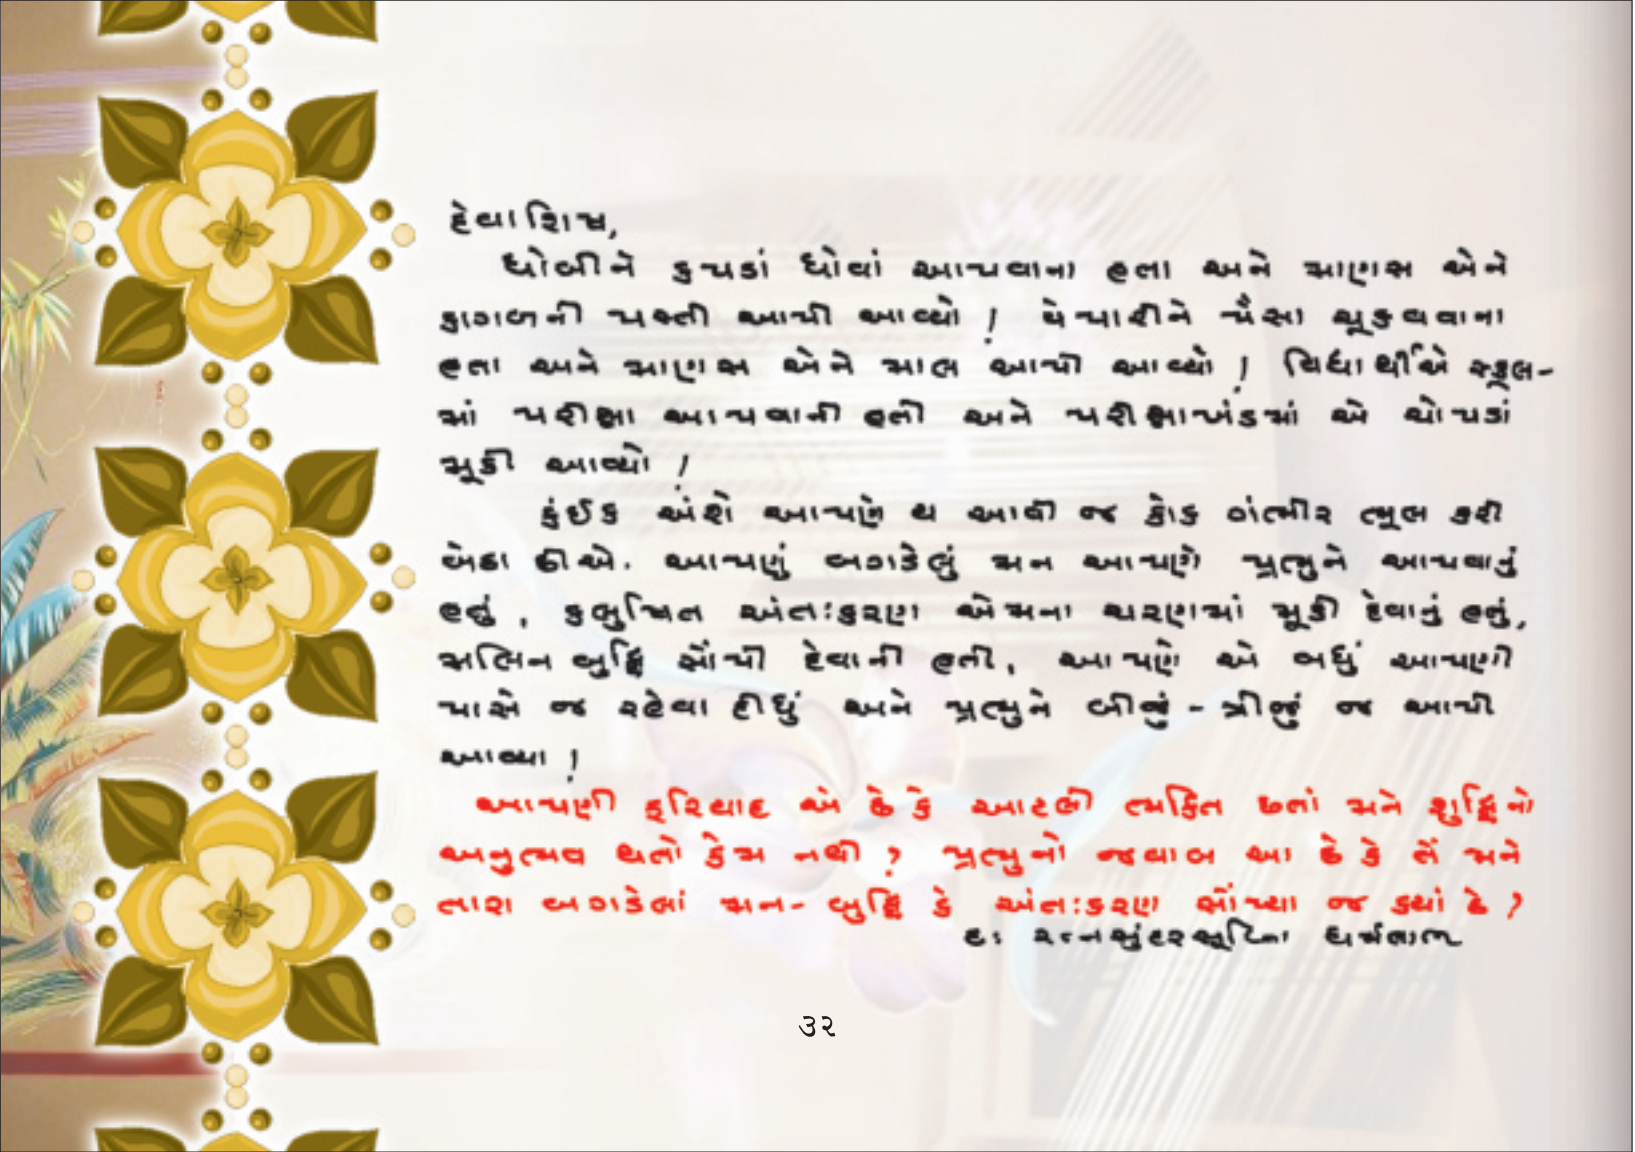 દેવાશિષ,
ધોબીને કપડાં ધોવાં આપવાના હતા અને માણસ એને
કાગળની પસ્તી આપી આવ્યો ! વેપારીને પૈસા ચૂકવવાના
હતા અને માણસ એને માલ આપી આવ્યો ! વિદ્યાર્થીએ સ્કૂલ-
માં પરીક્ષા આપવાની હતી અને પરીક્ષાખંડમાં એ ચોપડાં
મૂકી આવ્યો !
કંઈક અંશે આપણે ય આવી જ કોક ગંભીર ભૂલ કરી
બેઠા છીએ. આપણું બગડેલું મન આપણે પ્રભુને આપવાનું
હતું, કલુષિત અંતઃકરણ એમના ચરણમાં મૂકી દેવાનું હતું,
મલિન બુદ્ધિ સોંપી દેવાની હતી, આપણે એ બધું આપણી
પાસે જ રહેવા દીધું અને પ્રભુને બીજું - ત્રીજું જ આપી
આવ્યા !
આપણી ફરિયાદ એ છે કે આટલી ભક્તિ છતાં મને શુદ્ધિનો
અનુભવ થતો કેમ નથી ? પ્રભુનો જવાબ આ છે કે તેં મને
તારા બગડેલાં મન- બુદ્ધિ કે અંતઃકરણ સોંપ્યા જ ક્યાં છે ?
દઃ રત્નસુંદરસૂરિના ધર્મલાભ
૩૨